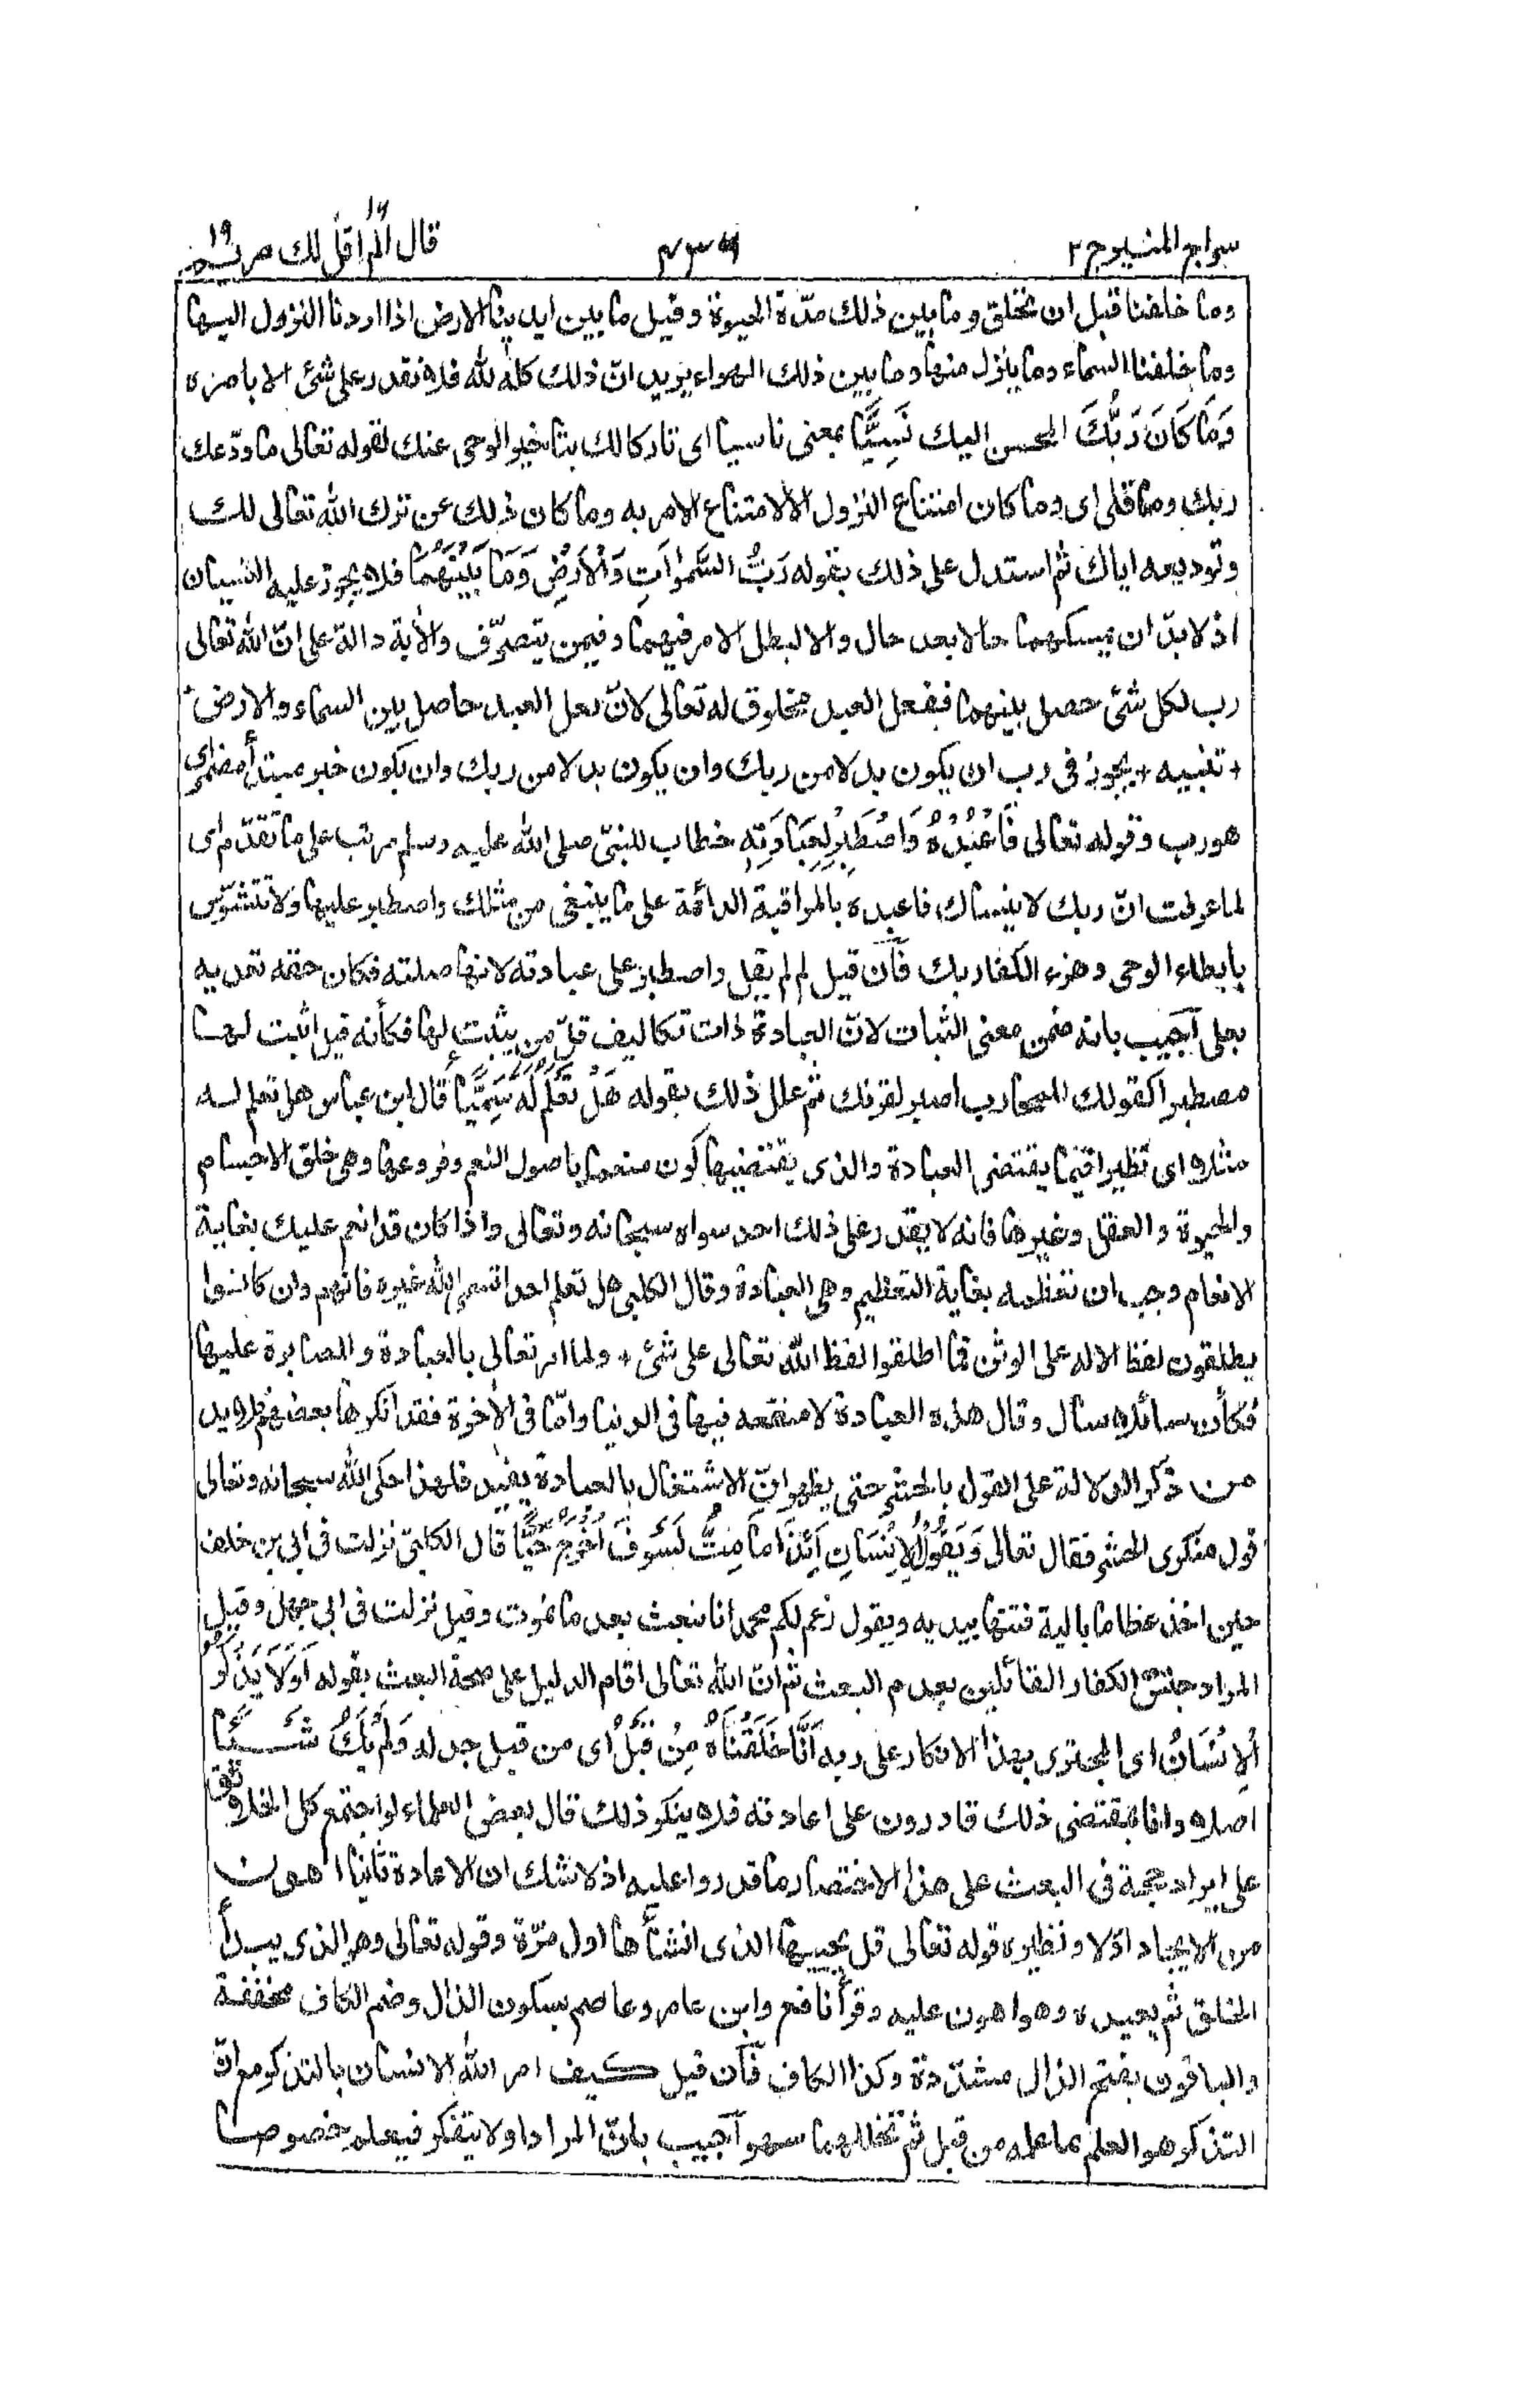 سراج المنير ج ٢
٤٣٦
قال الم اقل لك ١٦ مريم ١٩
وما خلفنا قبل ان نخلق وما بين ذلك مدّة الحيوة وقيل ما بين ايدينا الارض اذا اردنا النزول اليها
وما خلفنا السماء وما ينزل منها وما بين ذلك الهواء يريد انّ ذلك كله لله فلا نقدر على شئ الا بامره
وَمَا كَانَ رَبُّكَ المحسن اليك نَسِيًّا بمعنى ناسيا اى تاركا لك بتاخير الوحى عنك لقوله تعالى ما ودّعك
ربك وما قلى اى وما كان امتناع النزول الا لامتناع الامر به وما كان ذلك عن ترك الله تعالى لك
وتوديعه اياك ثم استدل على ذلك بقوله رَبُّ السَّمٰوٰاتِ وَالْاَرْضِ وَمَا بَيْنَهُمَا فلا يجوز عليه النسيان
اذ لا بدّ ان يمسكهما حالا بعد حال والا لبطل الامر فيهما وفيمن يتصرّف والآية دالة على انّ الله تعالى
رب لكل شئ حصل بينهما ففعل العبد مخلوق له تعالى لانّ فعل العبد حاصل بين السماء والارض
+ تنبيه + يجوز فى رب ان يكون بدلا من ربك وان يكون بدلا من ربك وان يكون خبر مبتدأ مضمر اى
هو رب وقوله تعالى فَاعْبُدْهُ وَاصْطَبِرْ لِعِبَادَتِهٖ خطاب للنبىّ صلى الله عليه وسلم مرتب على ما تقدّم اى
لما عرفت انّ ربك لا ينساك فاعبده بالمراقبة الدائمة على ما ينبغى من مثلك واصطبر عليها ولا تتشوّش
بابطاء الوحى وهزء الكفار بك فآن قيل لم لم يقل واصطبر على عبادته لانها صلته فكان حقه تعديه
بعلى آجيب بانه ضمن معنى الثبات لانّ العبادة ذات تكاليف قلّ من يثبت لها فكأنه قيل اثبت لها
مصطبرا كقولك للمحارب اصبر لقرنك ثم علل ذلك بقوله هَلْ تَعْلَمُ لَهٗ سَمِيًّا قال ابن عباس هل تعلم له
مثلا اى نظيرا فيما يقتضى العبادة والذى يقتضيها كون منعما باصول النعم وفروعها وهى خلق الاجسام
والحيوة والعقل وغيرها فانه لا يقدر على ذلك احد سواه سبحانه وتعالى واذا كان قد انعم عليك بغاية
الانعام وجب ان تعظمه بغاية التعظيم وهى العبادة وقال الكلبى هل تعلم احدا تسمى الله غيره فانهم وان كانوا
يطلقون لفظ الاله على الوثن فما اطلقوا لفظ الله تعالى على شئ + ولما امر تعالى بالعبادة والمصابرة عليها
فكأن سائلا سأل وقال هذه العبادة لا منفعه فيها فى الدنيا وامّا فى الآخرة فقد انكرها بعضهم فلا بد
من ذكر الدلالة على القول بالحشر حتى يظهر انّ الاشتغال بالعبادة يفيد فلهذا حكى الله سبحانه وتعالى
قول منكرى الحشر فقال تعالى وَيَقُوْلُ الْاِنْسَانِ اَئِذَا مَا مِتُّ لَسَوْفَ اُخْرَجُ حَيًّا قال الكلبىّ نزلت فى ابى بن خلف
حين اخذ عظاما بالية فتتها بيديه ويقول زعم لكم محمد انا نبعث بعد ما نموت وقيل نزلت فى ابى جهل وقيل
المراد جنس الكفار القائلين بعدم البعث ثم انّ الله تعالى اقام الدليل على صحة البعث بقوله اَوَلَا يَذْكُرُ
الْاِنْسَانُ اى المجترى بهذا الانكار على ربه اَنَّا خَلَقْنَاهُ مِنْ قَبْلُ اى من قبل جدله وَلَمْ يَكُ شَيْئًا
اصلا وانا بمقتضى ذلك قادرون على اعادته فلا ينكر ذلك قال بعض العلماء لو اجتمع كل الخلائق
على ايراد حجة فى البعث على هذا الاختصار ما قدروا عليه اذ لا شك ان الاعادة ثانيا اهون
من الايجاد اوّلا ونظيره قوله تعالى قل يحييها الذى انشأها اول مرّة وقوله تعالى وهو الذى يبدأ
الخلق ثم يعيده وهو اهون عليه وقرأ نافع وابن عامر وعاصم بسكون الذال وضم الكاف مخففة
والباقون بفتح الذال مشدّدة وكذا الكاف فآن قيل كيف امر الله الانسان بالتذكر مع انّ
التذكر هو العلم بما علمه من قبل ثم تخللهما سهو آجيب بانّ المراد اولا يتفكر فيعلم خصوصا